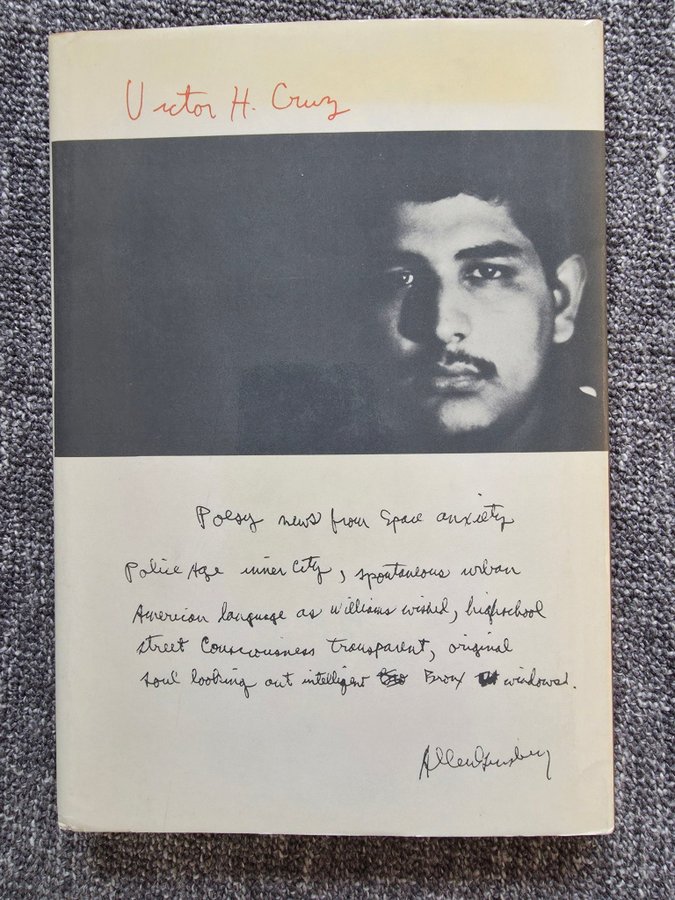 Victor H. Cruz
Poesy news from Space anxiety
Police Age inner City, spontaneous urban
American language as Williams wished, highschool
street Consciousness transparent, original
soul looking out intelligent Bronx windows.
Allen Ginsberg